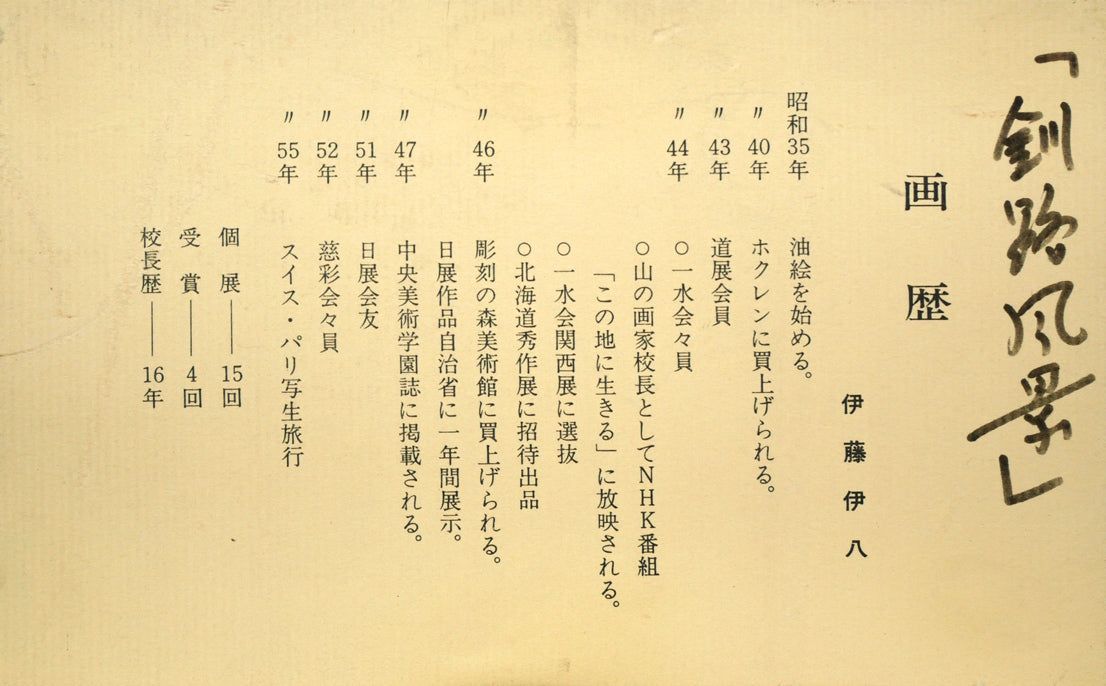 「釧路風景」
画歴
伊藤伊八
昭和35年 油絵を始める。
〃 40年 ホクレンに買上げられる。
〃 43年 道展会員
〃 44年 ○一水会々員
○山の画家校長としてNHK番組
「この地に生きる」に放映される。
○一水会関西展に選抜
○北海道秀作展に招待出品
〃 46年 彫刻の森美術館に買上げられる。
日展作品自治省に一年間展示。
〃 47年 中央美術学園誌に掲載される。
〃 51年 日展会友
〃 52年 慈彩会々員
〃 55年 スイス・パリ写生旅行
個展――15回
受賞――4回
校長歴――16年